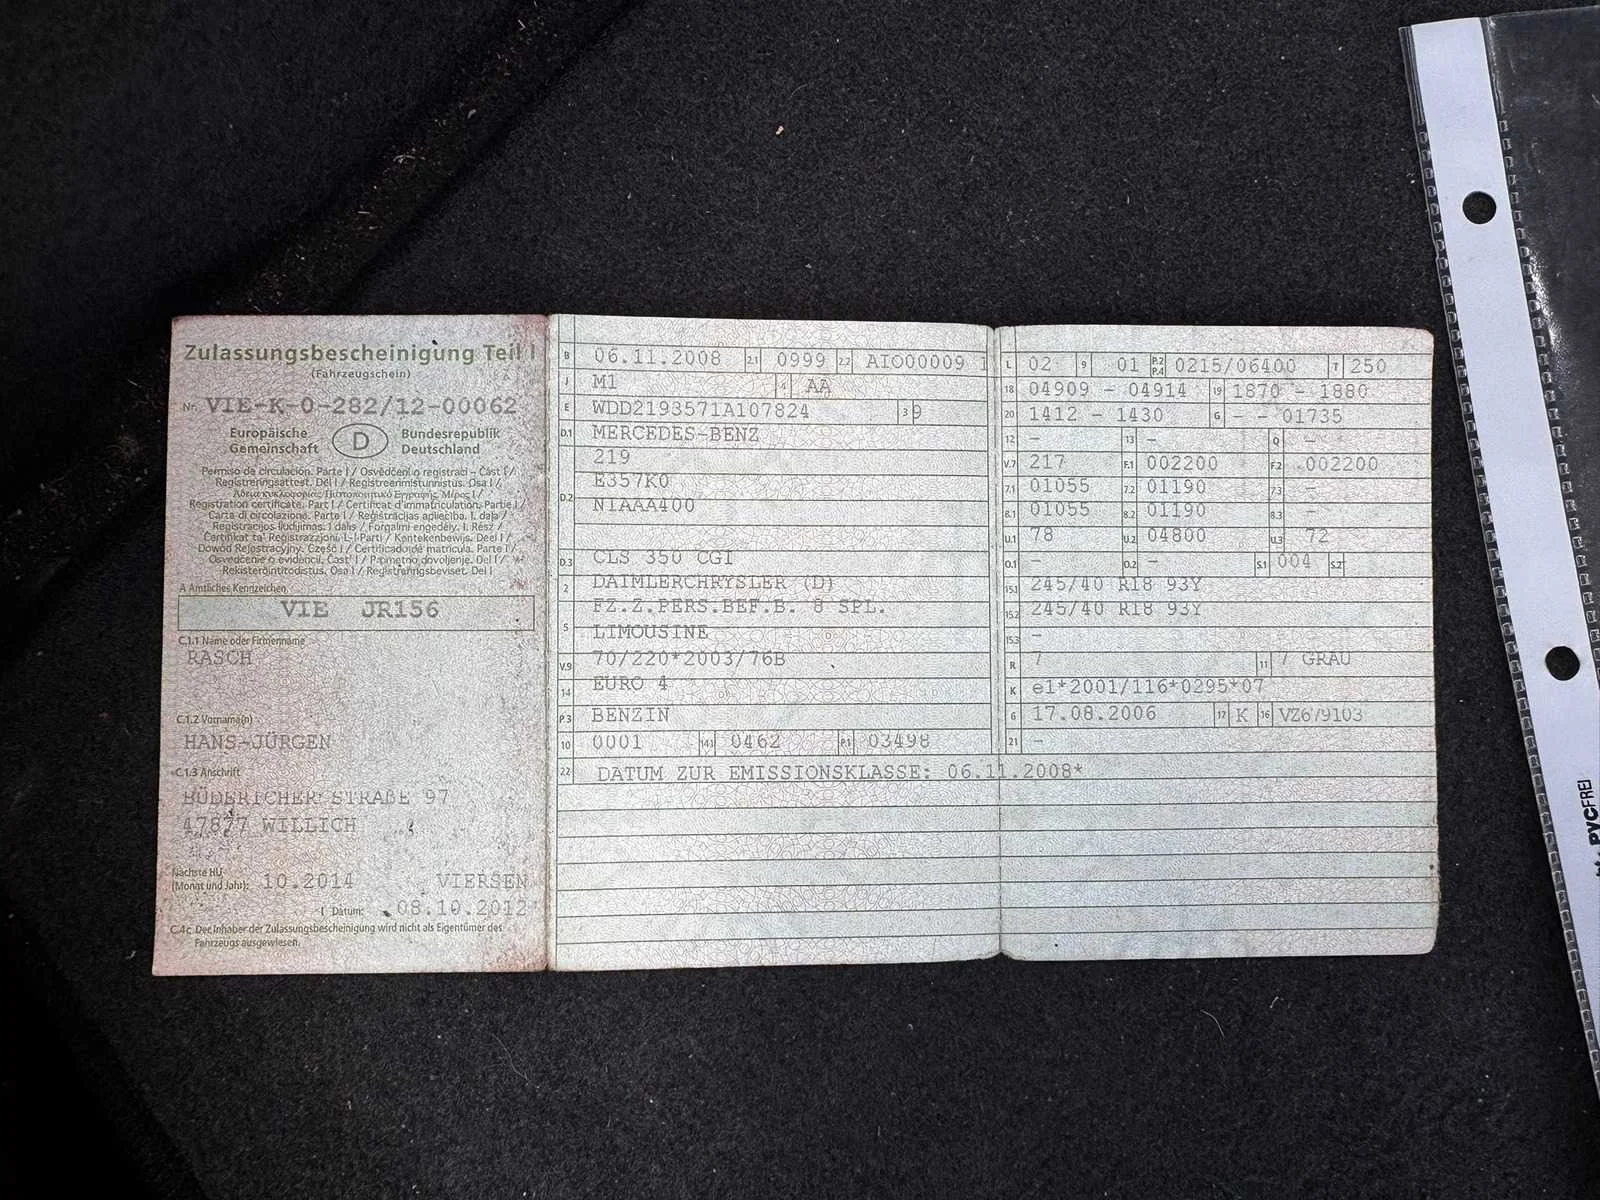 Zulassungsbescheinigung Teil I
(Fahrzeugschein)
Nr. VIE-K-0-282/12-00062
Europäische Gemeinschaft
D
Bundesrepublik Deutschland
Permiso de circulación. Parte I / Osvědčení o registraci – Část I /
Registreringsattest. Del I / Registreerimistunnistus. Osa I /
Άδεια κυκλοφορίας. Πιστοποιητικό Εγγραφής. Μέρος I /
Registration certificate. Part I / Certificat d'immatriculation. Partie I /
Carta di circolazione. Parte I / Reģistrācijas apliecība. I. daļa /
Registracijos liudijimas. I dalis / Forgalmi engedély. I. Rész /
Ċertifikat ta' Reġistrazzjoni. L-I Parti / Kentekenbewijs. Deel I /
Dowód Rejestracyjny. Część I / Certificado de matrícula. Parte I /
Osvedčenie o evidencii. Časť I / Prometno dovoljenje. Del I /
Rekisteröintitodistus. Osa I / Registreringsbeviset. Del I
A Amtliches Kennzeichen
VIE JR156
C.1.1 Name oder Firmenname
RASCH
C.1.2 Vorname(n)
HANS-JÜRGEN
C.1.3 Anschrift
BÜDERICHER STRAßE 97
47877 WILLICH
Nächste HU
(Monat und Jahr): 10.2014 VIERSEN
I Datum: 08.10.2012
C.4c Der Inhaber der Zulassungsbescheinigung wird nicht als Eigentümer des
Fahrzeugs ausgewiesen.
B 06.11.2008 2.1 0999 2.2 AIO00009 1
J M1 4 AA
E WDD2193571A107824 3 9
D.1 MERCEDES-BENZ
219
D.2 E357K0
N1AAA400
D.3 CLS 350 CGI
2 DAIMLERCHRYSLER (D)
FZ.Z.PERS.BEF.B. 8 SPL.
5 LIMOUSINE
V.9 70/220*2003/76B
14 EURO 4
P.3 BENZIN
10 0001 14.1 0462 P.1 03498
22 DATUM ZUR EMISSIONSKLASSE: 06.11.2008*
L 02 9 01 P.2 P.4 0215/06400 T 250
18 04909 - 04914 19 1870 - 1880
20 1412 - 1430 G - - 01735
12 - 13 - Q -
V.7 217 F.1 002200 F.2 002200
7.1 01055 7.2 01190 7.3 -
8.1 01055 8.2 01190 8.3 -
U.1 78 U.2 04800 U.3 72
O.1 - O.2 - S.1 004 S.2
15.1 245/40 R18 93Y
15.2 245/40 R18 93Y
15.3 -
R 7 11 7 GRAU
K e1*2001/116*0295*07
6 17.08.2006 17 K 16 VZ679103
21 -
PVCFREI